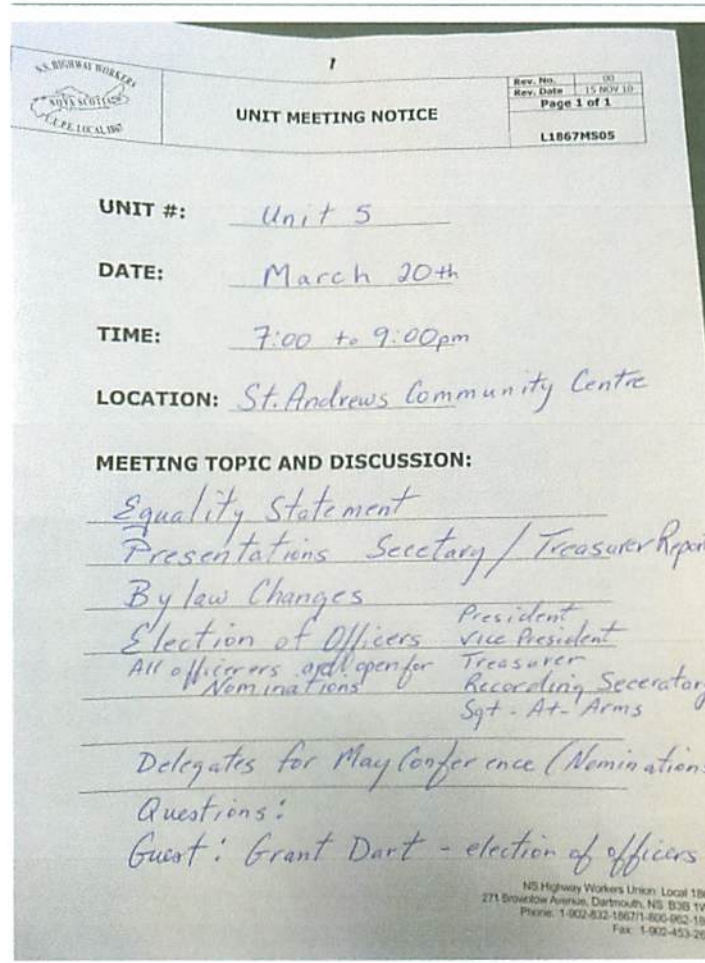 N.S. HIGHWAY WORKERS
NOVA SCOTIA
C.U.P.E. LOCAL 1867
1
UNIT MEETING NOTICE
Rev. No. 00
Rev. Date 15 NOV 10
Page 1 of 1
L1867MS05
UNIT #: Unit 5
DATE: March 20th
TIME: 7:00 to 9:00pm
LOCATION: St. Andrews Community Centre
MEETING TOPIC AND DISCUSSION:
Equality Statement
Presentations Secetary / Treasurer Report
By law Changes
Election of Officers President
Vice President
All officerers open for Treasurer
Nominations Recording Seceratory
Sgt - At - Arms
Delegates for May Conference (Nominations
Questions:
Guest: Grant Dart - election of officers
NS Highway Workers Union Local 186
271 Brownlow Avenue, Dartmouth, NS B3B 1W
Phone: 1-902-832-1867/1-800-962-18
Fax: 1-902-453-26